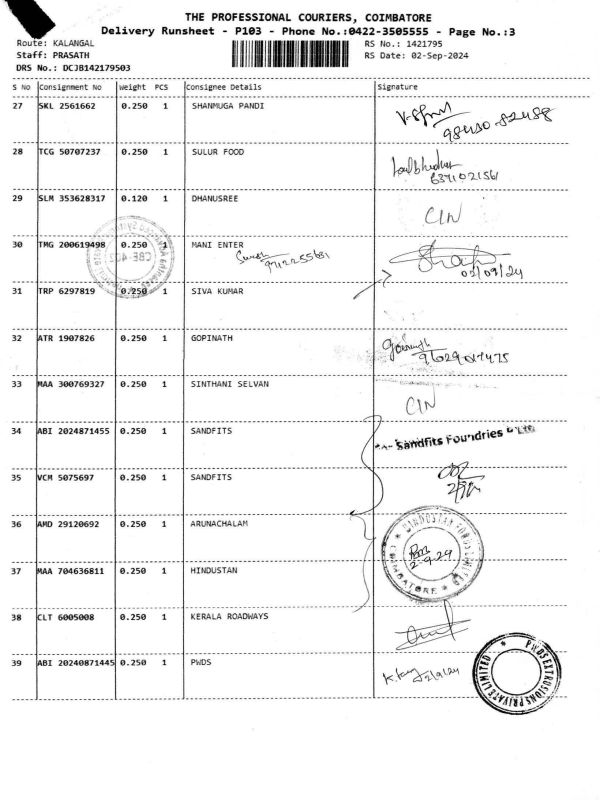 THE PROFESSIONAL COURIERS, COIMBATORE
Delivery Runsheet - P103 - Phone No.:0422-3505555 - Page No.:3
Route: KALANGAL
RS No.: 1421795
Staff: PRASATH
RS Date: 02-Sep-2024
DRS No.: DCJB142179503
S No Consignment No Weight PCS Consignee Details Signature
27 SKL 2561662 0.250 1 SHANMUGA PANDI
28 TCG 50707237 0.250 1 SULUR FOOD
6371021561
29 SLM 353628317 0.120 1 DHANUSREE
CIN
30 TMG 200619498 0.250 1 MANI ENTER
02/09/24
31 TRP 6297819 0.250 1 SIVA KUMAR
32 ATR 1907826 0.250 1 GOPINATH
33 MAA 300769327 0.250 1 SINTHANI SELVAN
CIN
34 ABI 2024871455 0.250 1 SANDFITS
Sandfits Foundries
35 VCM 5075697 0.250 1 SANDFITS
36 AMD 29120692 0.250 1 ARUNACHALAM
2-9-24
COIMBATORE
37 MAA 704636811 0.250 1 HINDUSTAN
38 CLT 6005008 0.250 1 KERALA ROADWAYS
39 ABI 20240871445 0.250 1 PWDS
2/9/24
PWDS EXTRUSIONS PRIVATE LIMITED